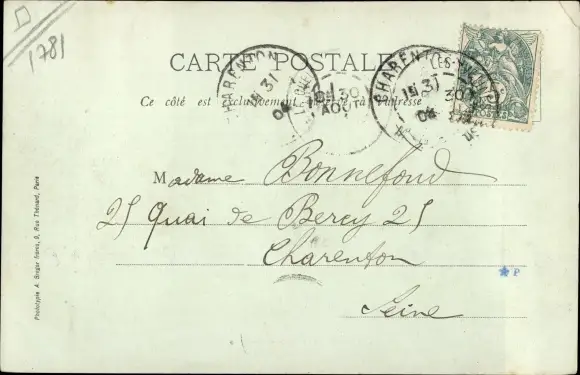 1781
CARTE POSTALE
Ce côté est exclusivement réservé à l'adresse
CHARENTON
31
04
30
AOUT
CHARENTON
31
04
30
POSTES
Madame Bonnefoud
25 Quai de Bercy 25
Charenton
Seine
P
Phototypie A. Breger frères, 9, Rue Thénard, Paris